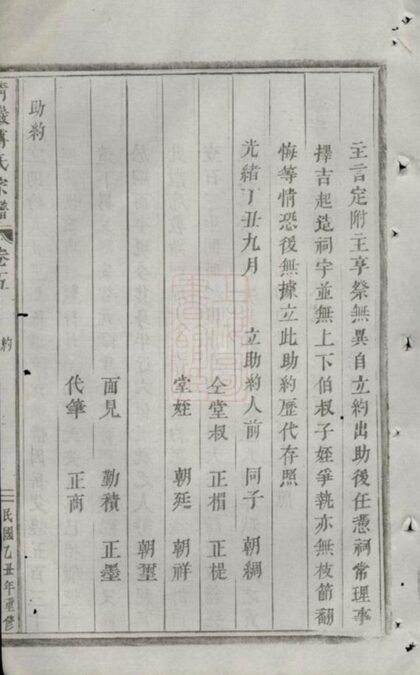 主言定附主享祭無異自立約出助後任憑祠常理事
擇吉起造祠宇並無上下伯叔子姪爭執亦無枝節翻
悔等情恐後無據立此助約歷代存照
光緒丁丑九月 立助約人前 同子 朝綢
仝堂叔 正楣 正楗
堂姪 朝珽 朝祥
朝璽
面見 勤積 正墨
代筆 正商
助約
氏宗譜 卷五 約 民國乙丑年重修